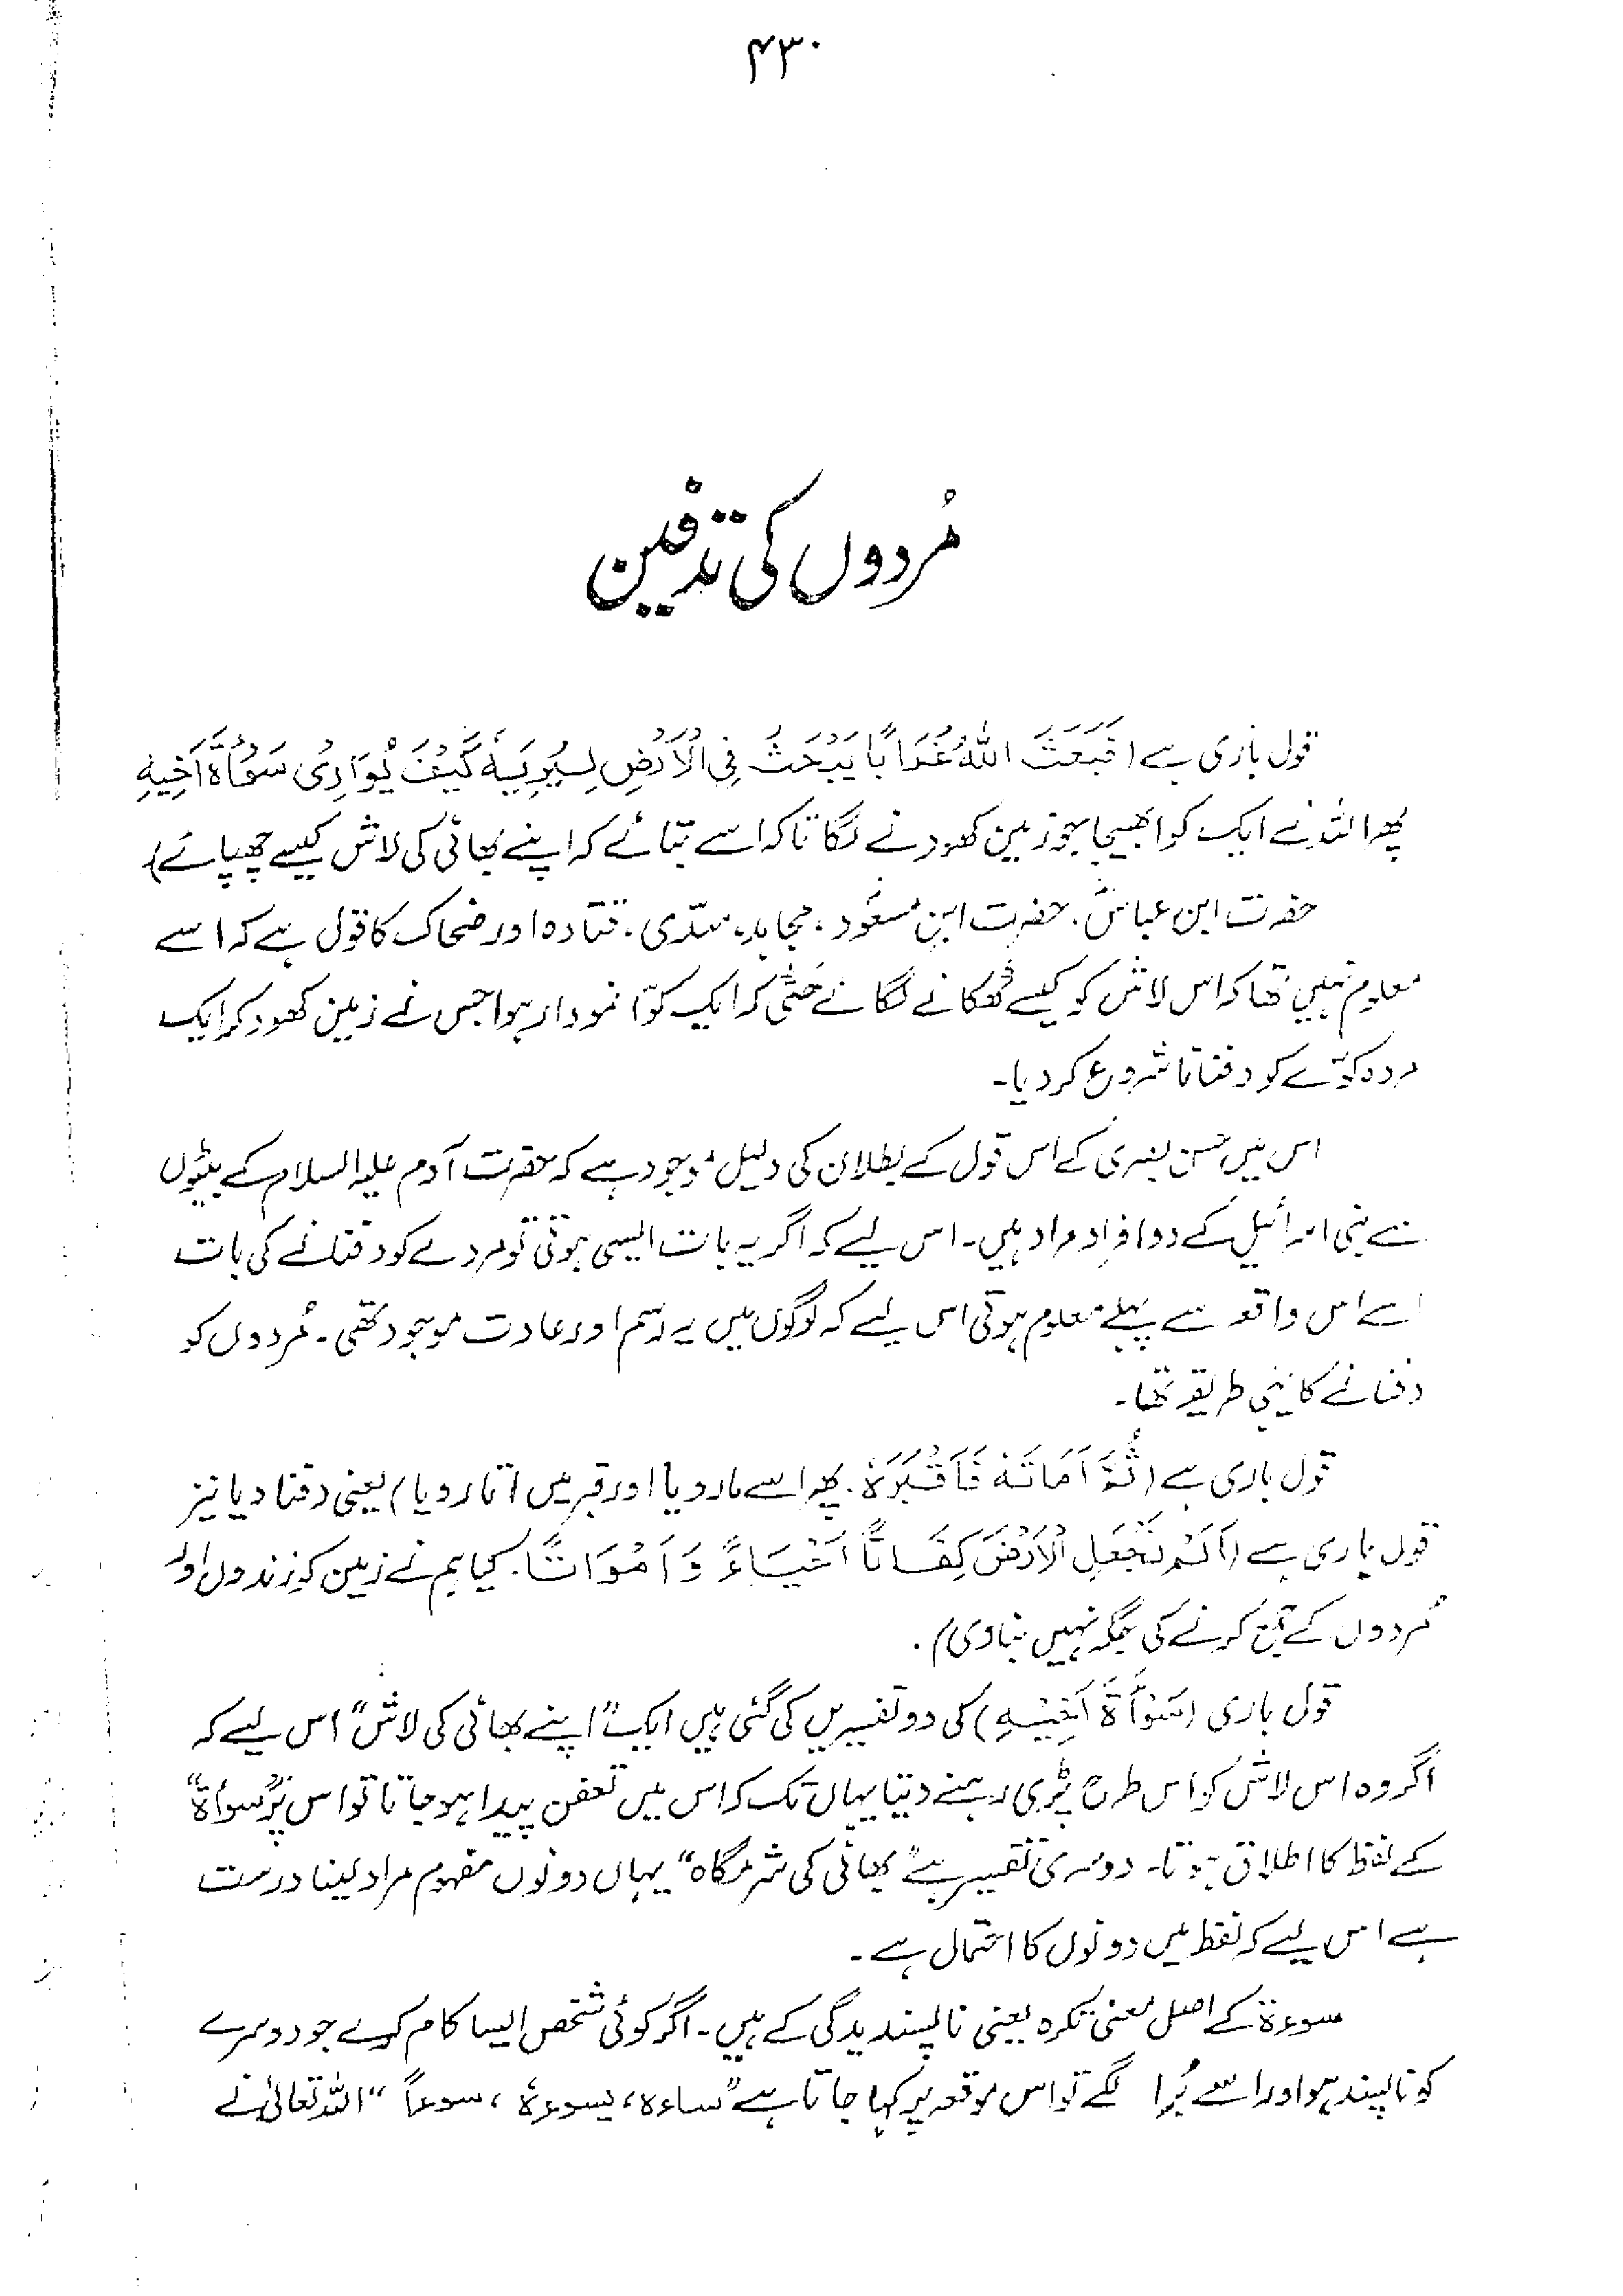 ۴۳۰
مُردوں کی تدفین
قول باری ہے (فَبَعَثَ اللّٰهُ غُرَابًا يَّبْحَثُ فِي الْاَرْضِ لِيُرِيَهٗ كَيْفَ يُوَارِيْ سَوْاَةَ اَخِيْهِ
پھر اللہ نے ایک کوا بھیجا جو زمین کھودنے لگا تاکہ اسے بتائے کہ اپنے بھائی کی لاش کیسے چھپائے)
حضرت ابن عباسؓ، حضرت ابن مسعودؓ، مجاہد، سدّی، قتادہ اور ضحاک کا قول ہے کہ اسے
معلوم نہیں تھا کہ اس لاش کو کیسے ٹھکانے لگائے حتّٰی کہ ایک کوّا نمودار ہوا جس نے زمین کھود کر ایک
مردہ کوّے کو دفنانا شروع کر دیا۔
اس میں حسن بصری کے اس قول کے بطلان کی دلیل موجود ہے کہ حضرت آدم علیہ السلام کے بیٹوں
سے بنی اسرائیل کے دو افراد مراد ہیں۔ اس لیے کہ اگر یہ بات ایسی ہوتی تو مردے کو دفنانے کی بات
اسے اس واقعہ سے پہلے معلوم ہوتی اس لیے کہ لوگوں میں یہ رسم اور عادت موجود تھی۔ مُردوں کو
دفنانے کا یہی طریقہ تھا۔
قول باری ہے (ثُمَّ اَمَاتَهٗ فَاَقْبَرَهٗ. پھر اسے مار دیا اور قبر میں اتار دیا) یعنی دفنا دیا نیز
قول باری ہے (اَلَمْ نَجْعَلِ الْاَرْضَ كِفَاتًا اَحْيَاءً وَّ اَمْوَاتًا. کیا ہم نے زمین کو زندوں اور
مُردوں کے جمع کرنے کی جگہ نہیں بنا دی)۔
قول باری (سَوْاَةَ اَخِيْهِ) کی دو تفسیریں کی گئی ہیں ایک "اپنے بھائی کی لاش" اس لیے کہ
اگر وہ اس لاش کو اس طرح پڑی رہنے دیتا یہاں تک کہ اس میں تعفن پیدا ہو جاتا تو اس پر "سوأۃ"
کے لفظ کا اطلاق ہوتا۔ دوسری تفسیر ہے "بھائی کی شرمگاہ" یہاں دونوں مفہوم مراد لینا درست
ہے اس لیے کہ لفظ میں دونوں کا احتمال ہے۔
سوءۃ کے اصل معنی تکرہ یعنی ناپسندیدگی کے ہیں۔ اگر کوئی شخص ایسا کام کرے جو دوسرے
کو ناپسند ہو اور اسے بُرا لگے تو اس موقعہ پر کہا جاتا ہے "ساءہ، یسوءہٗ، سوءاً" اللہ تعالیٰ نے